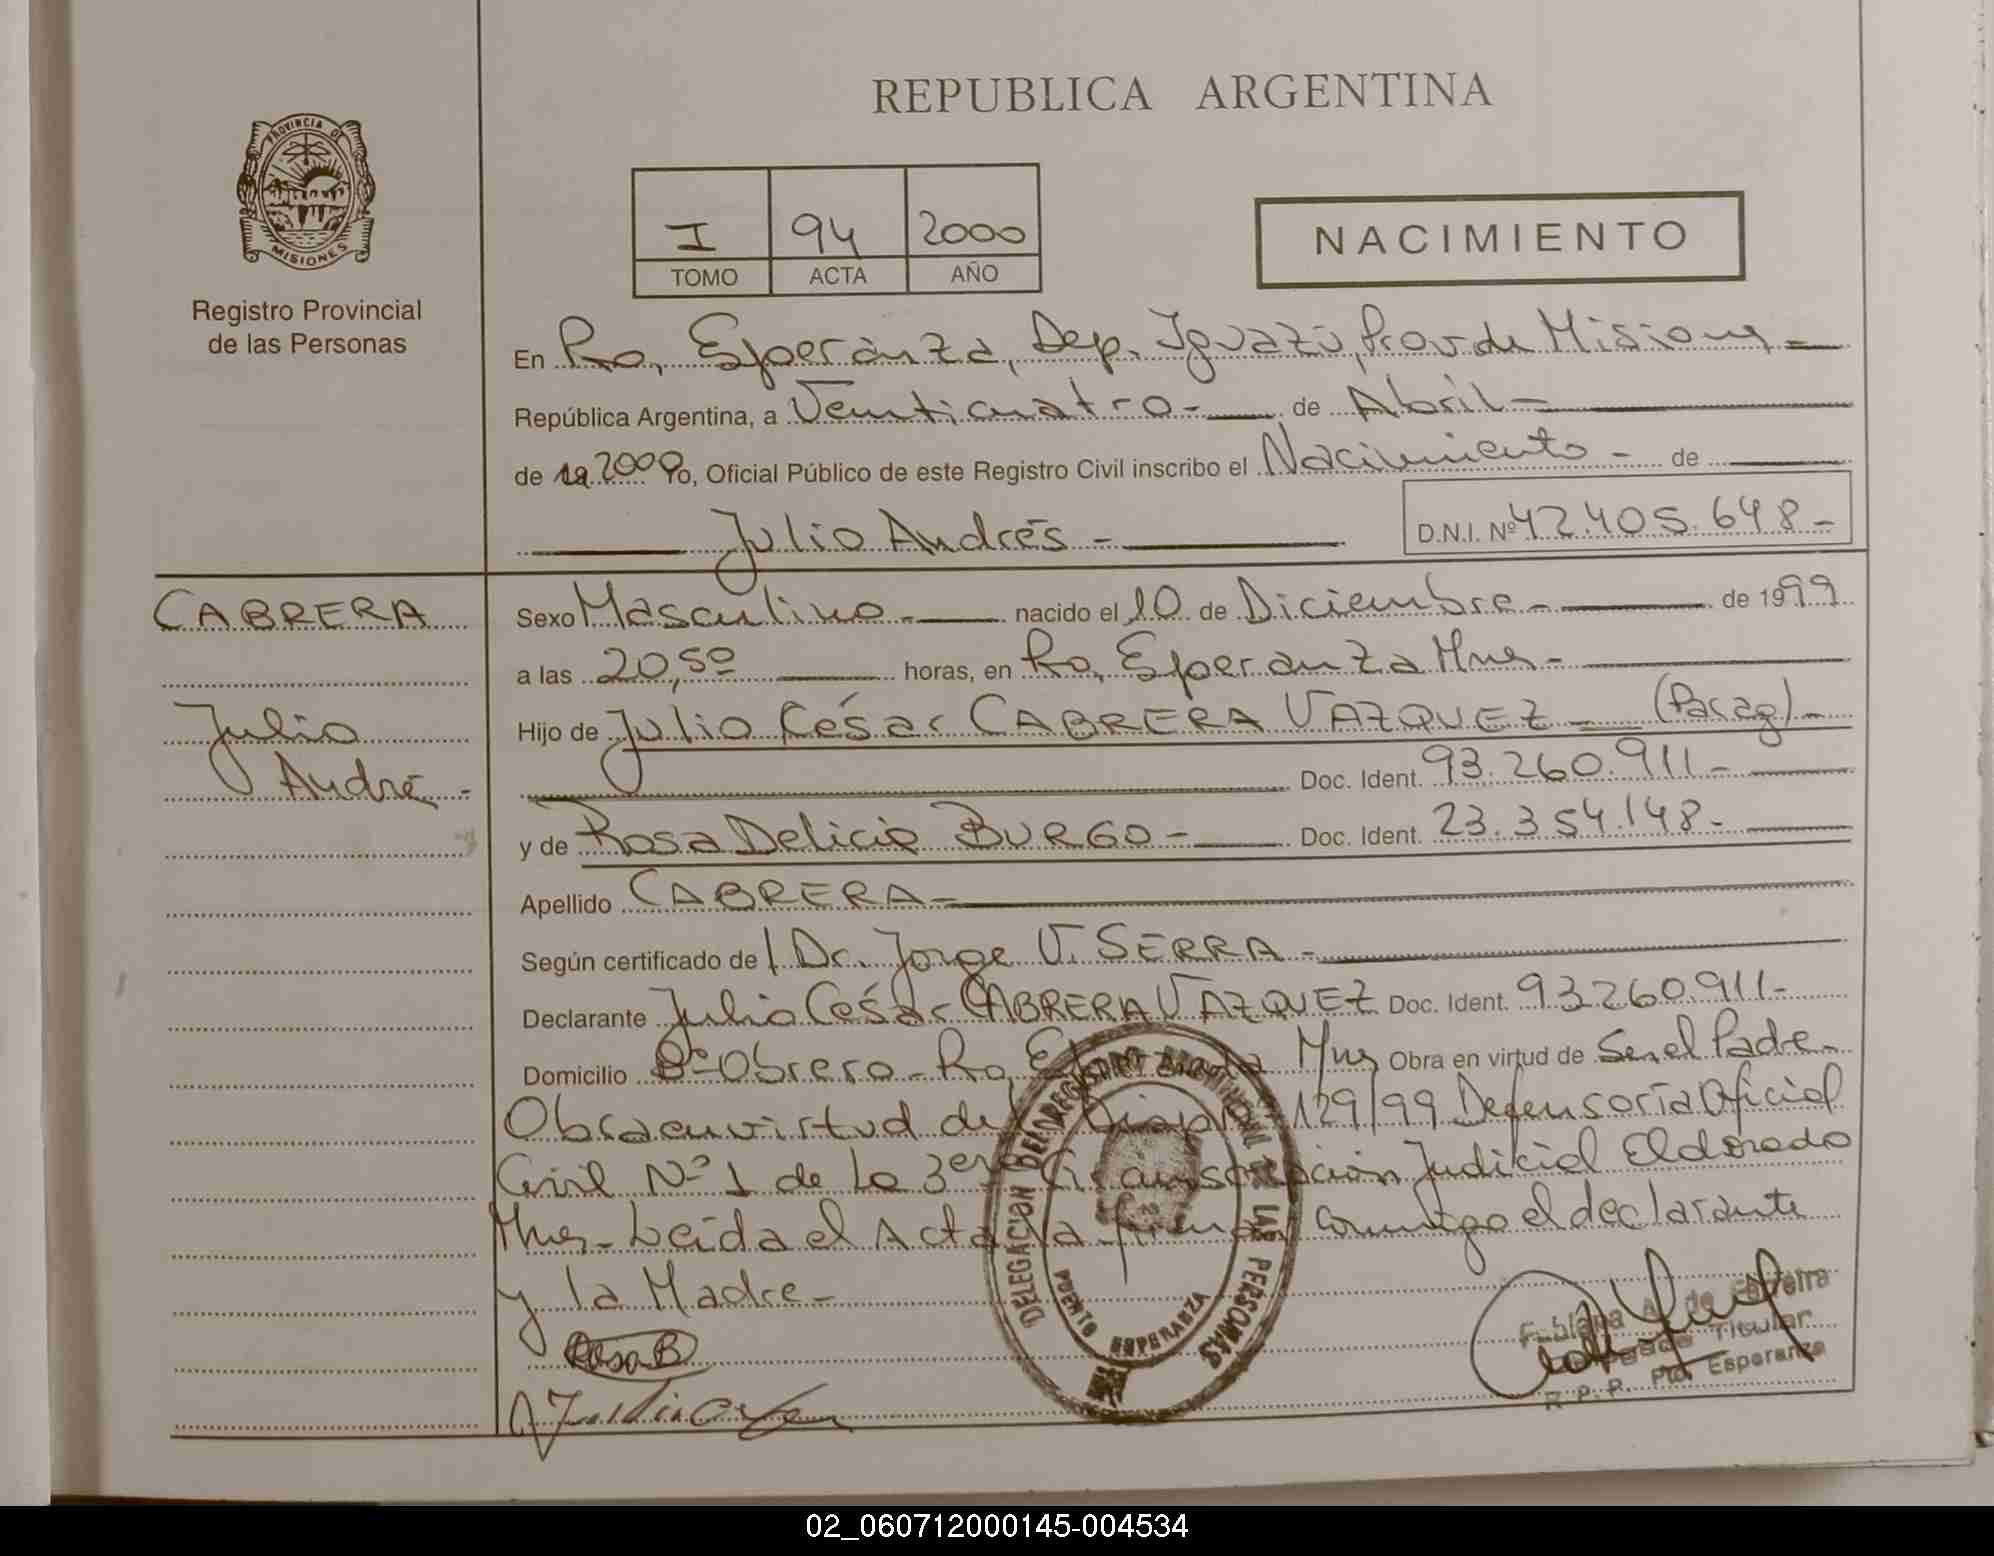 PROVINCIA DE
MISIONES
Registro Provincial
de las Personas
REPUBLICA ARGENTINA
I 94 2000
TOMO ACTA AÑO
NACIMIENTO
En Pto, Esperanza, Dep. Iguazú, Prov de Misiones
República Argentina, a Veinticuatro - de Abril -
de 19 2000 Yo, Oficial Público de este Registro Civil inscribo el Nacimiento - de
Julio Andrés - D.N.I. Nº 42.405.648 -
CABRERA
Julio
André -
Sexo Masculino - nacido el 10 de Diciembre - de 1999
a las 20,50 horas, en Pto, Esperanza Mnes -
Hijo de Julio César CABRERA VAZQUEZ - (Parag) -
Doc. Ident. 93.260.911 -
y de Rosa Delicia BURGO - Doc. Ident. 23.354.148 -
Apellido CABRERA -
Según certificado de / Dr. Jorge V. SERRA -
Declarante Julio César CABRERA VAZQUEZ Doc. Ident. 93260911 -
Domicilio Bº Obrero - Pto, Esperanza Mnes Obra en virtud de Ser el Padre -
Obra en virtud de 129/99 Defensoría Oficial
Civil Nº 1 de la 3era Circunscripción Judicial Eldorado
Mnes - Leída el Acta la firman conmigo el declarante
y la Madre -
Rosa B
DELEGACION DEL REGISTRO PROVINCIAL DE LAS PERSONAS
PUERTO ESPERANZA
Titular
R.P.P. Pto. Esperanza
02_060712000145-004534